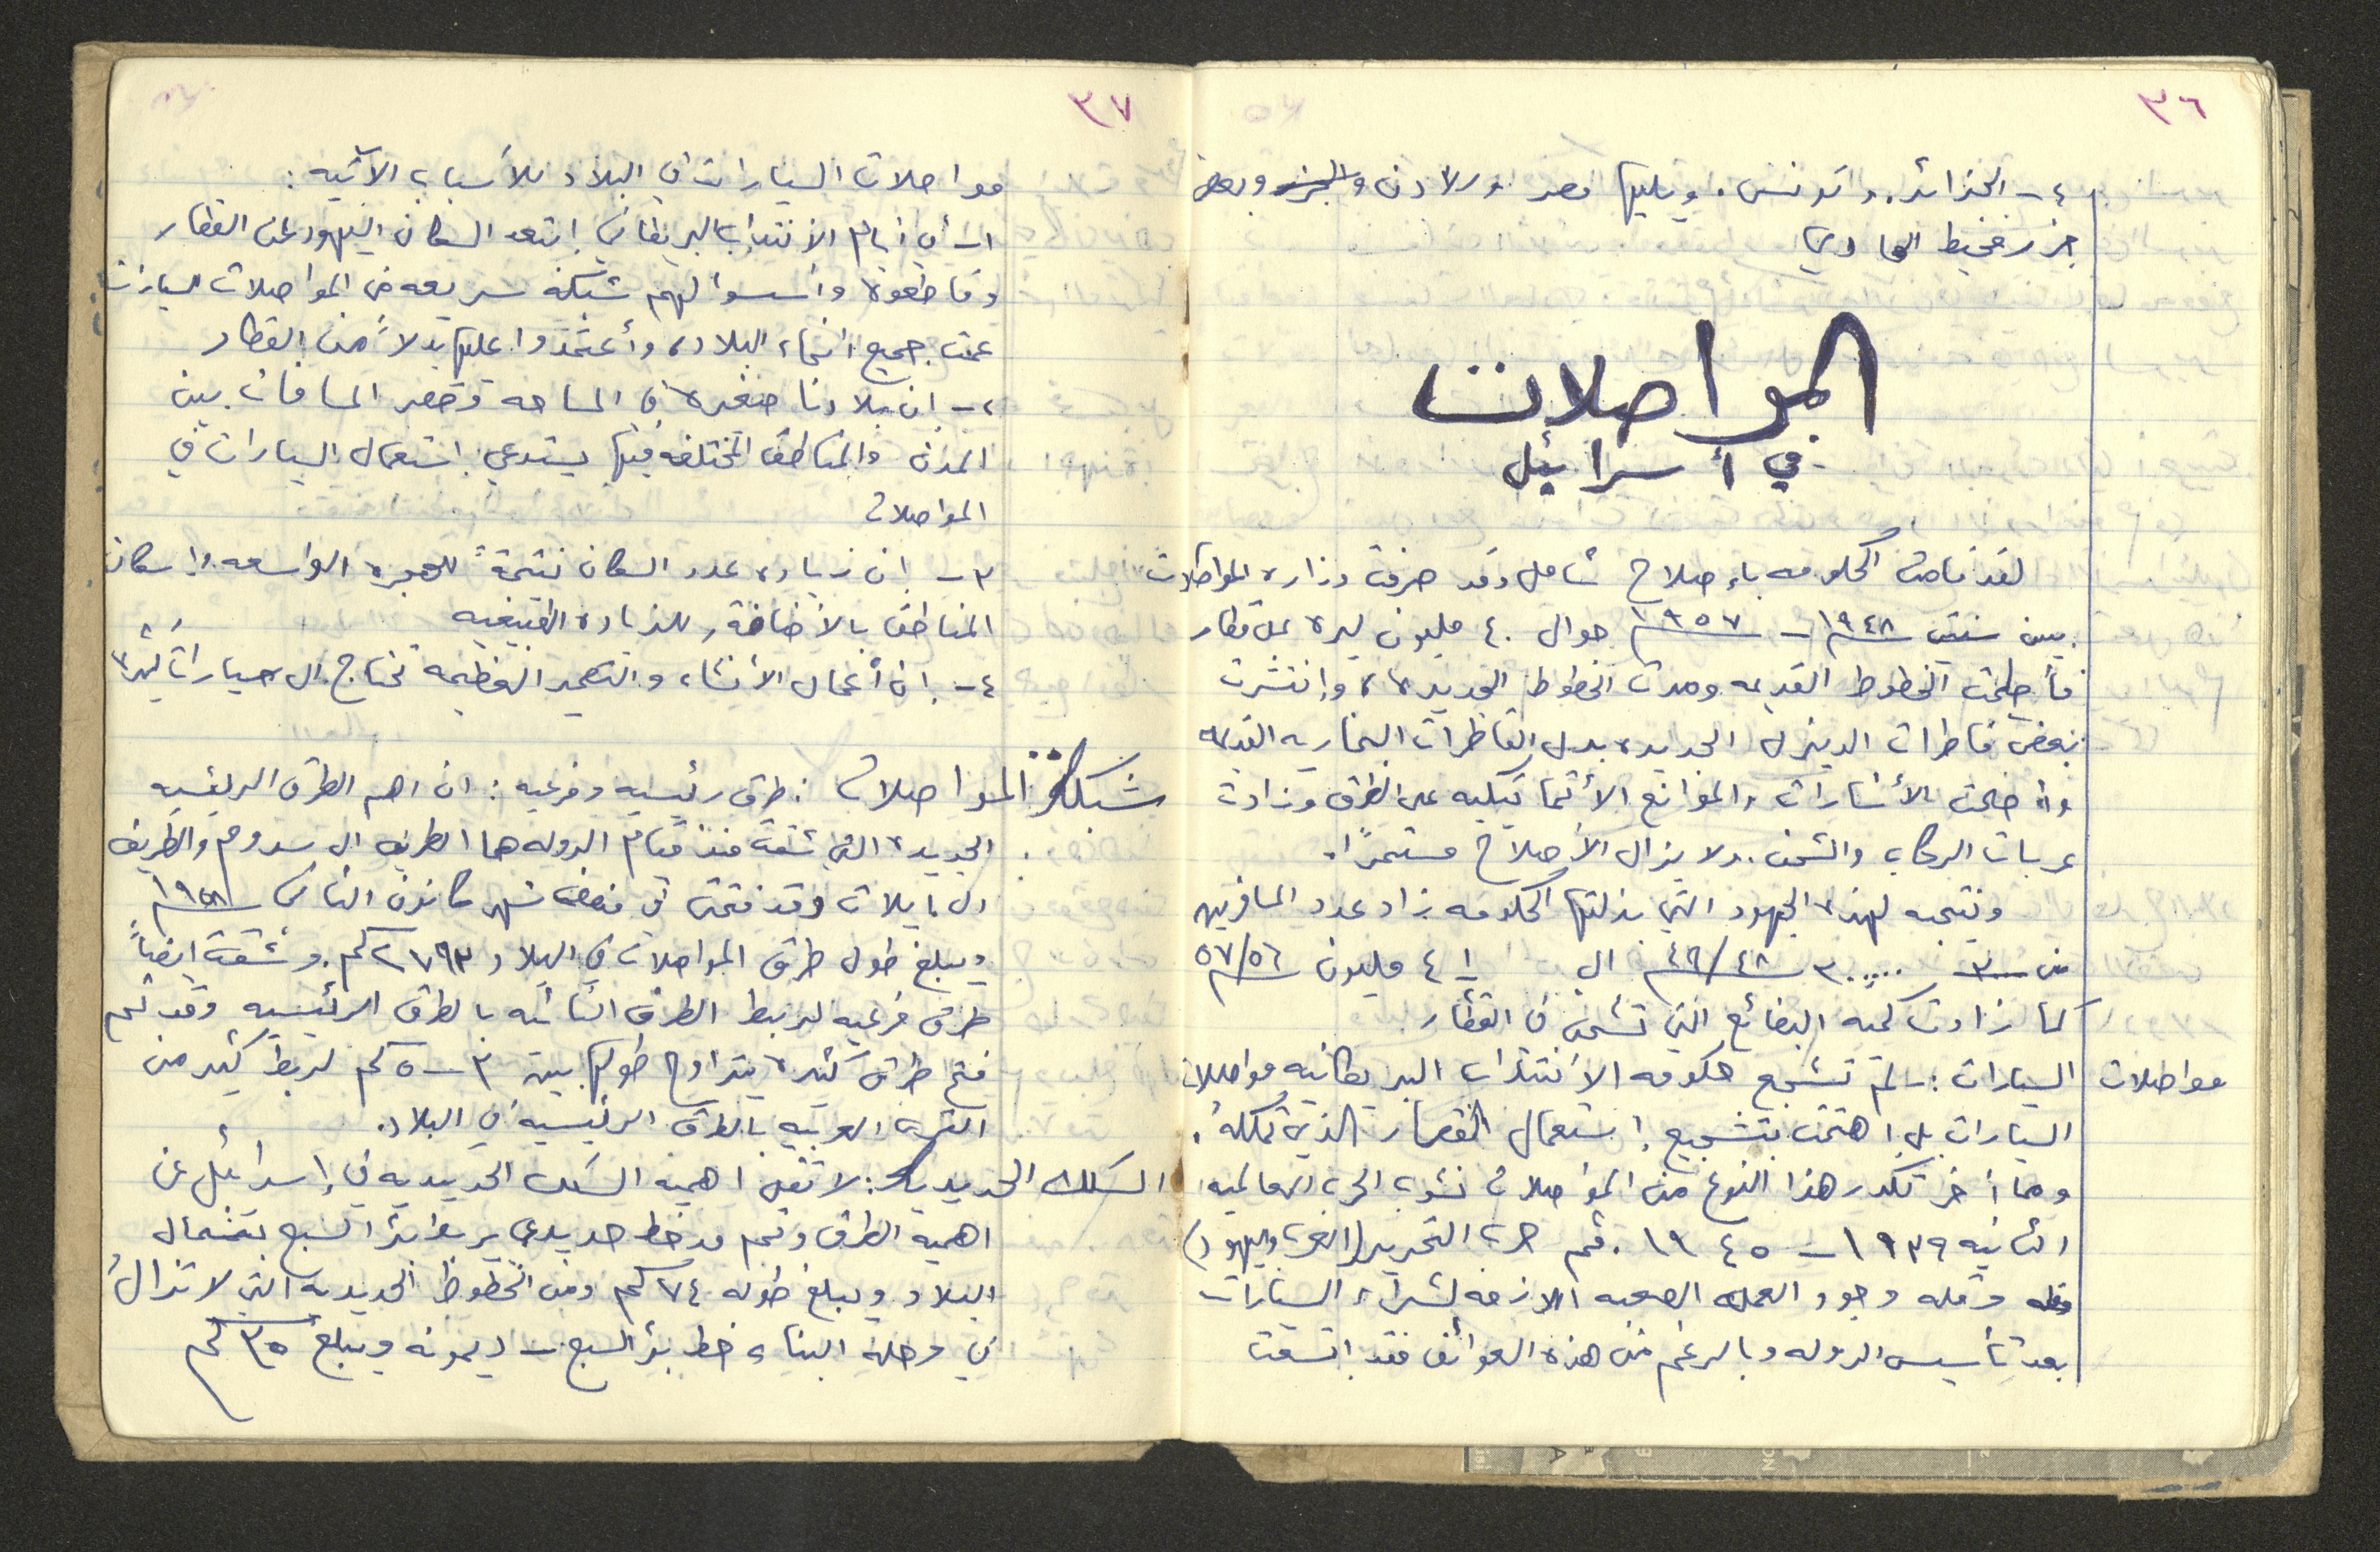 ٣٦
٤- الجزائر. وتونس. ويليها مصر والاردن وبعض
جزر محيط الهادي
المواصلات
في أسرائيل
لقد قامت الحكومه بإصلاح شامل وقد صرفت وزاره المواصلات
بين سنتي ١٩٤٨ - ١٩٥٧م حوالي ٤٠ مليون ليره على قطار
فأصلحت الخطوط القديمه ومدت الخطوط الجديده، وإنتشرت
بعض قاطرات الديزل الجديده بدل القاطرات البخاريه القديمه
وأصلحت الأشارات والموانع الأتماتيكيه على الطرق وزادت
عربات الركاب والشحن. ولا يزال الأصلاح مستمرًا.
ونتيجه لهذه الجهود التي بذلتها الحكومه زاد عدد المسافرين
من ٤٩/٤٨م الى مليون ٥٧/٥٦م
كما زادت كميه البضائع التي تشحن في القطار
مواصلات السيارات :- لم تشجع حكومه الأنتداب البريطانيه مواصلات
السيارات بل اهتمت بتشجيع إستعمال القطار الذي تملكهُ.
ومما أخر تطور هذا النوع من المواصلات نشوب الحرب العالميه
الثانيه ١٩٣٩ - ١٩٤٥. ثم حرب التحرير (العرب واليهود)
وقله وجود العمله الصعبه اللازمه لشراء السيارات
بعد تأسيس الدوله وبالرغم من هذه العوائق فقد اتسعت
٣٧
مواصلات السيارات في البلاد للأسباب الآتيه :
١- في أيام الإنتداب البريطاني إبتعد السكان اليهود عن القطار
وقاطعوه وأسسوا لهم شبكة سريعه من المواصلات السيارات
عمت جميع انحاء البلاد، وأعتمدوا عليها بدلاً من القطار
٢- إن بلادنا صغيره في المساحه وقصر المسافات بين
المدن والمناطق المختلفه فيها يستدعي إستعمال السيارات في
المواصلات
٣- إن زياده عدد السكان نتيجةً للهجره الواسعه وإسكان
المناطق بالأضافة للزياده الطبيعيه
٤- إن أعمال الأنشاء والتعمير العظيمه تحتاج الى سيارات كثيره
شبكة المواصلات : طرق رئيسيه وفرعيه : ان اهم الطرق الرئيسيه
الجديده التي شقت منذ قيام الدوله هما الطريق الى سدوم والطريق
الى ايلات وقد فتحت في منتصف شهر كانون الثاني ١٩٥٨م
ويبلغ طول طرق المواصلات في البلاد ٢٧٩٣ كم. وشقت ايضاً
طرق فرعيه لربط الطرق النائيه بالطرق الرئيسيه وقد تم
فتح طرق كثيره يتراوح طولها بين ٣-٥ كم لربط كثير من
القرى العربيه بالطرق الرئيسيه في البلاد.
السكك الحديديه : لا تقل اهميه السكك الحديديه في إسرائيل عن
اهميه الطرق وتم مد خط حديدي يربط بئر السبع بشمال
البلاد ويبلغ طوله ٧٤ كم ومن الخطوط الحديديه التي لا تزالُ
في مرحلة البناء خط بئر السبع - ديمونه ويبلغ ٣٥ كم